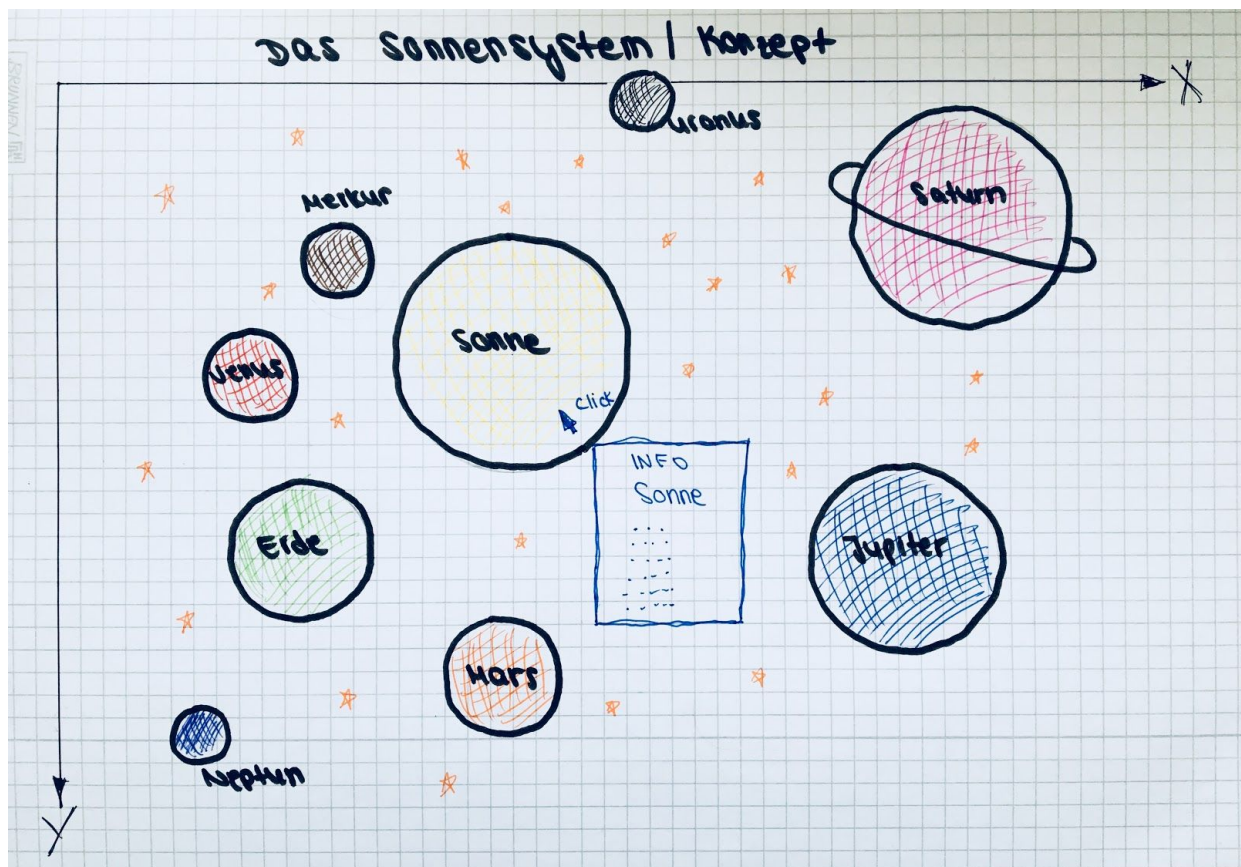 Das Sonnensystem / Konzept
X
Uranus
Saturn
Merkur
Sonne
Venus
Click
INFO
Sonne
Erde
Jupiter
Mars
Neptun
Y